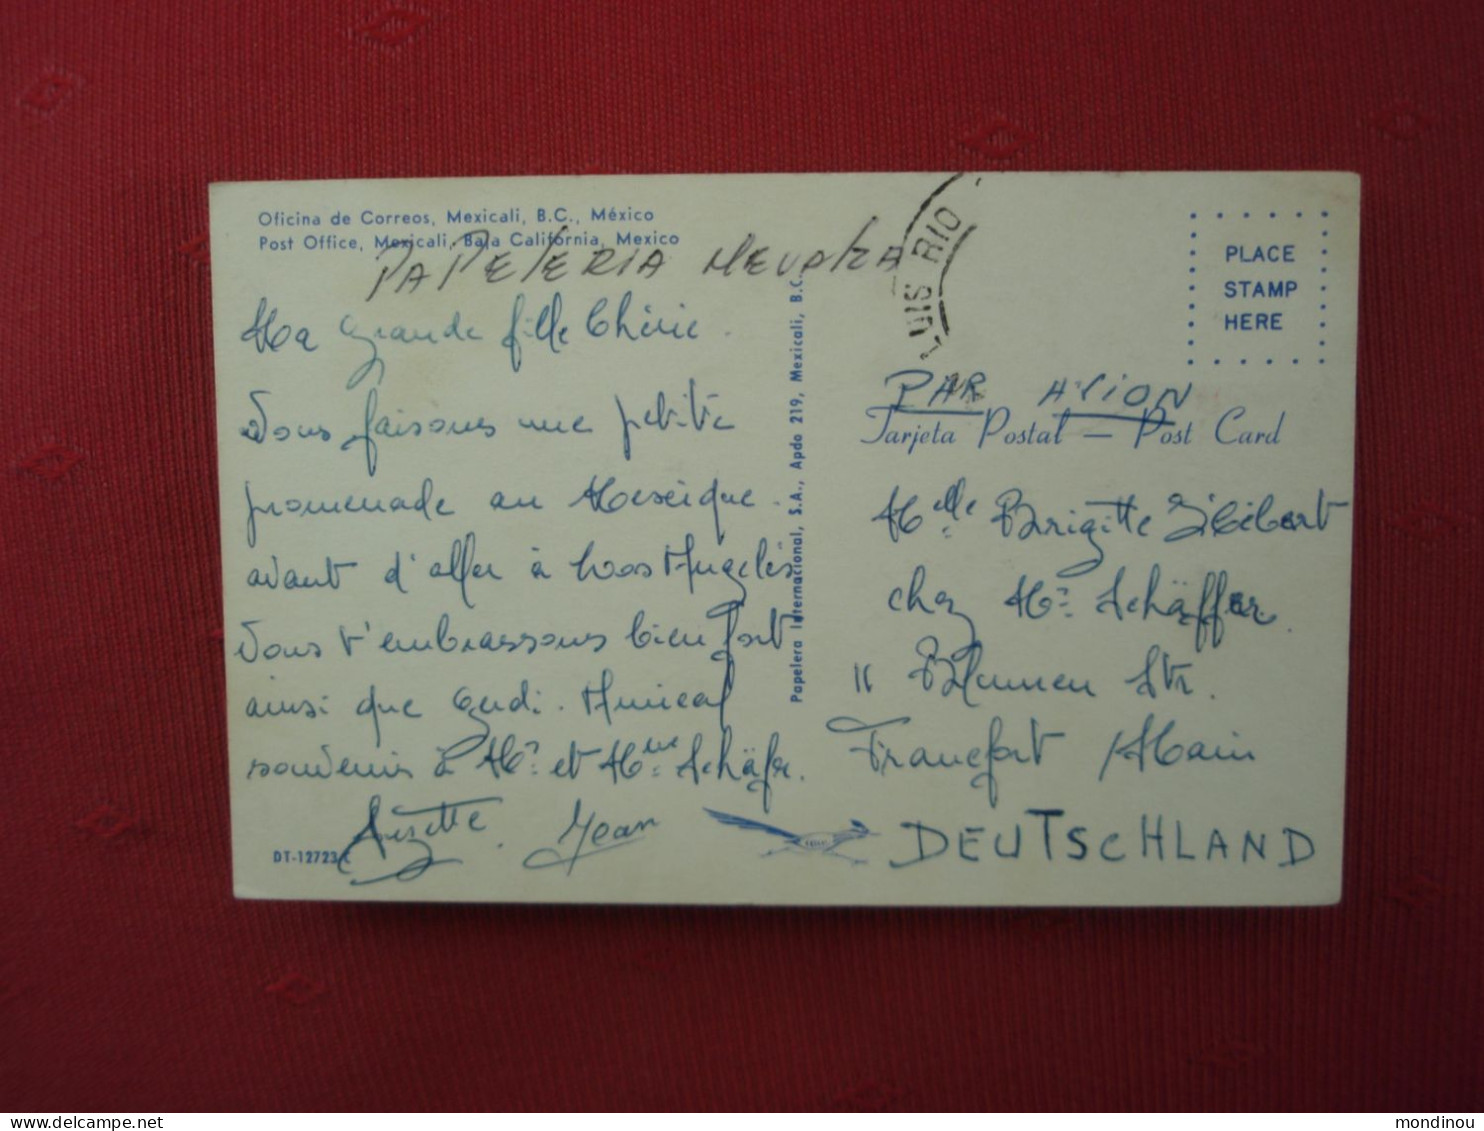 Oficina de Correos, Mexicali, B.C., México
Post Office, Mexicali, Baja California, Mexico
PAPELERIA
Ma grande fille Chérie.
Nous faisons une petite
promenade au Mexique.
avant d'aller à Los Angelès
Nous t'embrassons bien fort
ainsi que Gerdi. Amical
souvenir à Mr. et Mme Schäfer.
Suzette. Jean
DT-12723-C
Papelera Internacional, S.A., Apdo 219, Mexicali, B.C.
LUIS RIO
PLACE
STAMP
HERE
PAR AVION
Tarjeta Postal — Post Card
Melle Brigitte
chez Mr. Schäffer.
11 Blumen Str.
Francfort / Main
DEUTSCHLAND
mondinou